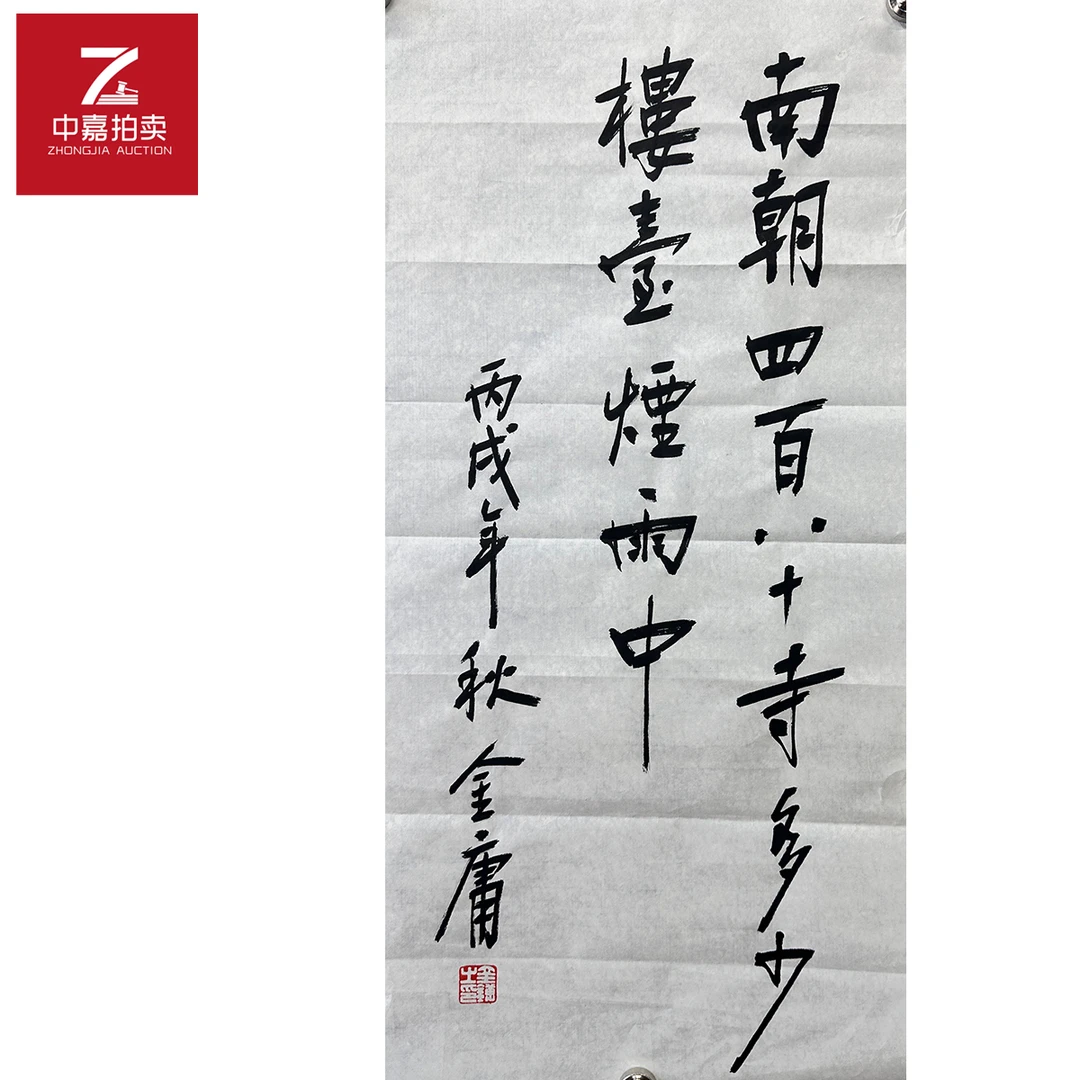 中嘉拍卖
ZHONGJIA AUCTION
南朝四百八十寺多少
樓臺煙雨中
丙戌年秋 金庸